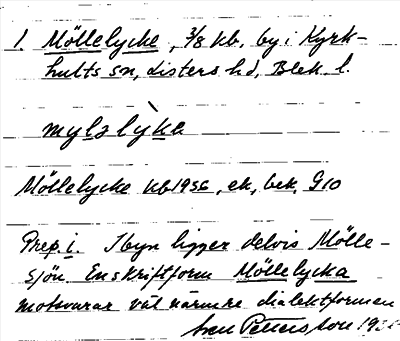 1. Möllelycke, 3/8 kb, by i Kyrk-
hults sn, Listers hd, Blek. l.
mylǝ lỳka
Möllelycke kb 1936, ek, bek. G10
Prep. i. I byn ligger delvis Mölle-
sjön. En skriftform Möllelycka
motsvarar väl närmre dialektformen
Sven Pettersson